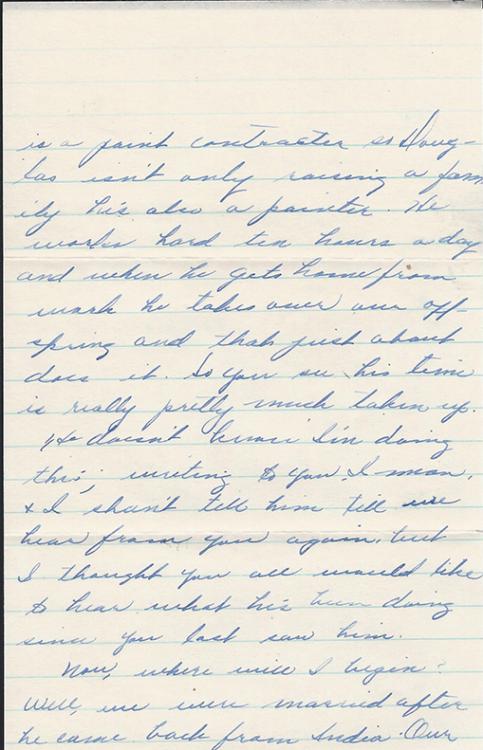 is a paint contracter so Doug-
las isn't only raising a fam
ily his also a painter. He
works hard ten hours a day
and when he gets home from
work he takes over our off-
spring and thats just about
does it. So you see his time
is really pretty much taken up.
He doesn't know I'm doing
this; writing to you, I mean,
& I shan't tell him till we
hear from you again, but
I thought you all would like
to hear what his been doing
since you last saw him.
Now, where will I begin?
Well, we were married after
he came back from India. Our